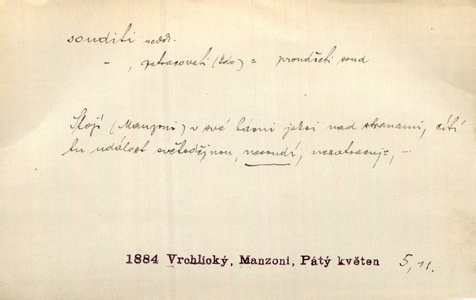 souditi nedok.
– , zatracovati (kdo) a pronášeti soud
Stojí (Manzoni) v své básni jaksi nad stranami, cítí
tu událost světodějnou, nesoudí, nezatracuje, ...
1884 Vrchlický, Manzoni, Pátý květen 5, 11.